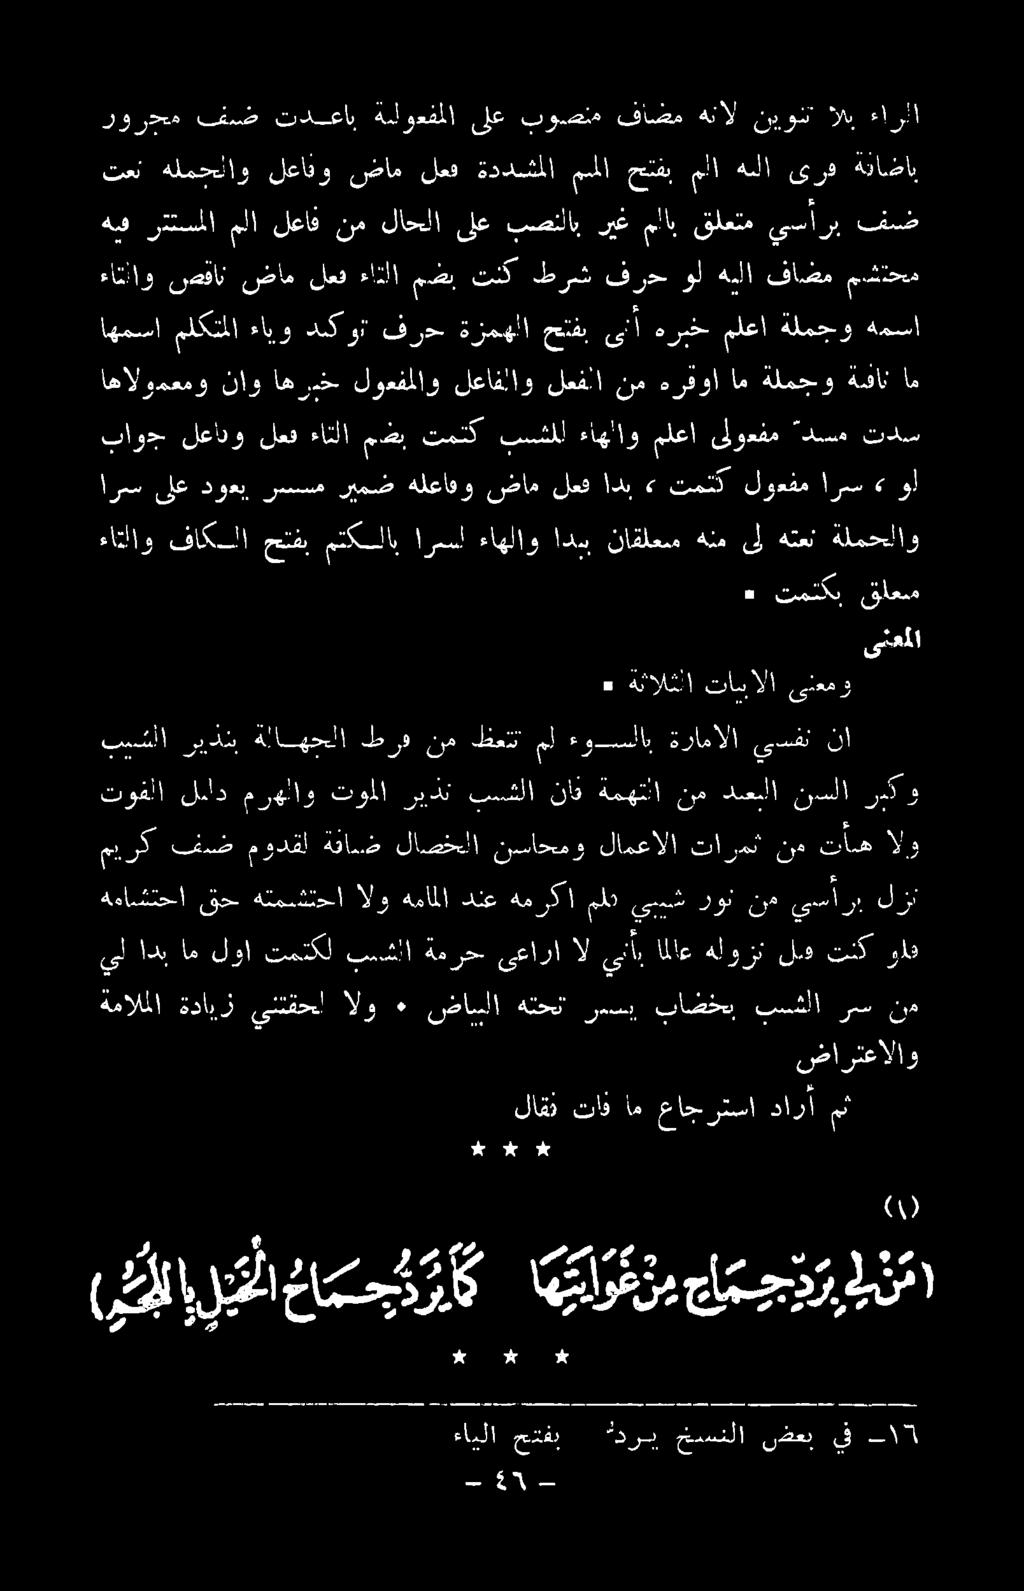 الراء بلا تنوين لانه مضاف منصوب على المفعولية باعـدت ضيف مجرور
باضافة قرى اليه الم بفتح الميم المشددة فعل ماض وفاعل والجمله نعت
ضيف برأسي متعلق بالم غير بالنصب على الحال من فاعل الم المستتر فيه
محتشم مضاف اليه لو حرف شرط كنت بضم التاء فعل ماض ناقص والتاء
اسمه وجملة اعلم خبره أنى بفتح الهمزة حرف توكيد وياء المتكلم اسمها
ما نافية وجملة ما اوقره من الفعل والفاعل والمفعول خبرها وان ومعمولاها
سدت مسدّ مفعولى اعلم والهاء للشيب كتمت بضم التاء فعل وفاعل جواب
لو ، سرا مفعول كتمت ، بدا فعل ماض وفاعله ضمير مستتر يعود على سرا
والجملة نعته لى منه متعلقان ببدا والهاء لسرا بالـكتم بفتح الـكاف والتاء
متعلق بكتمت .
المعنى
ومعنى الابيات الثلاثة .
ان نفسي الامارة بالســوء لم تتعظ من فرط الجهـالة بنذير الشيب
وكبر السن البعيد من التهمة فان الشيب نذير الموت والهرم دليل الفوت
ولا هيأت من ثمرات الاعمال ومحاسن الخصال ضيافة لقدوم ضيف كريم
نزل برأسي من نور شيبي فلم اكرمه عند المامه ولا احتشمته حق احتشامه
فلو كنت قبل نزوله عالما بأني لا اراعى حرمة الشيب لكتمت اول ما بدا لي
من سر الشيب بخضاب يستر تحته البياض • ولا لحقتني زيادة الملامة
والاعتراض
ثم أراد استرجاع ما فات فقال
★ ★ ★
(١)
(مَنْ لِي بِرَدِّ جِمَاحٍ مِنْ غَوَايَتِهَا كَمَا يُرَدُّ جِمَاحُ الْخَيْلِ بِاللُّجُمِ)
★ ★ ★
١٦– في بعض النسخ يـردّ بفتح الياء
– ٤٦ –